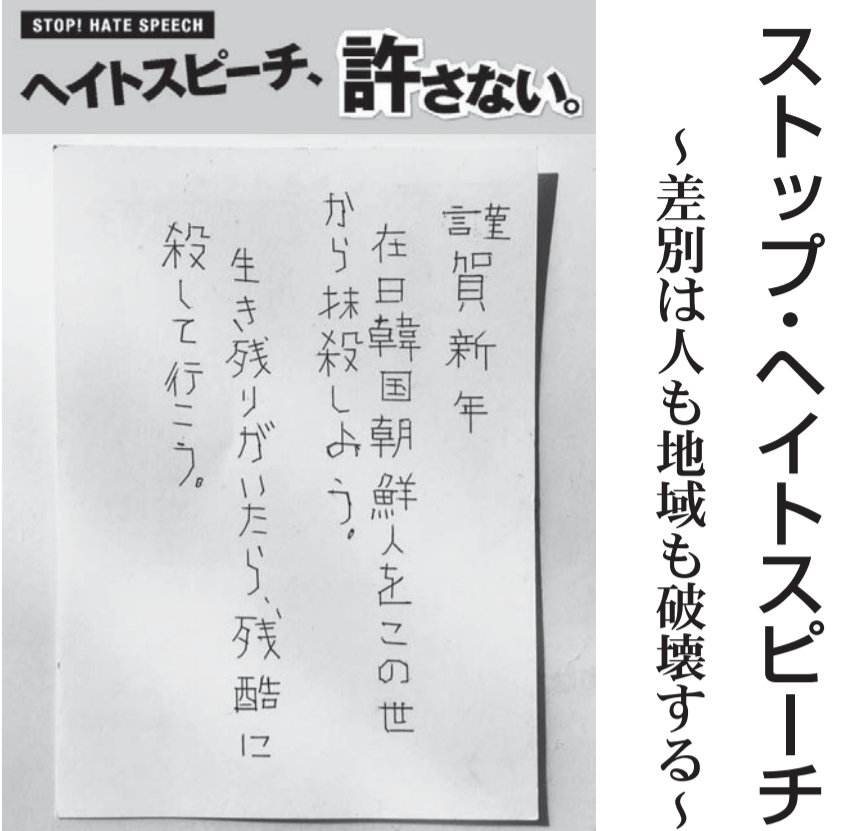 STOP! HATE SPEECH
ヘイトスピーチ、許さない。
ストップ・ヘイトスピーチ
～差別は人も地域も破壊する～
謹賀新年
在日韓国朝鮮人をこの世
から抹殺しよう。
生き残りがいたら、残酷に
殺して行こう。